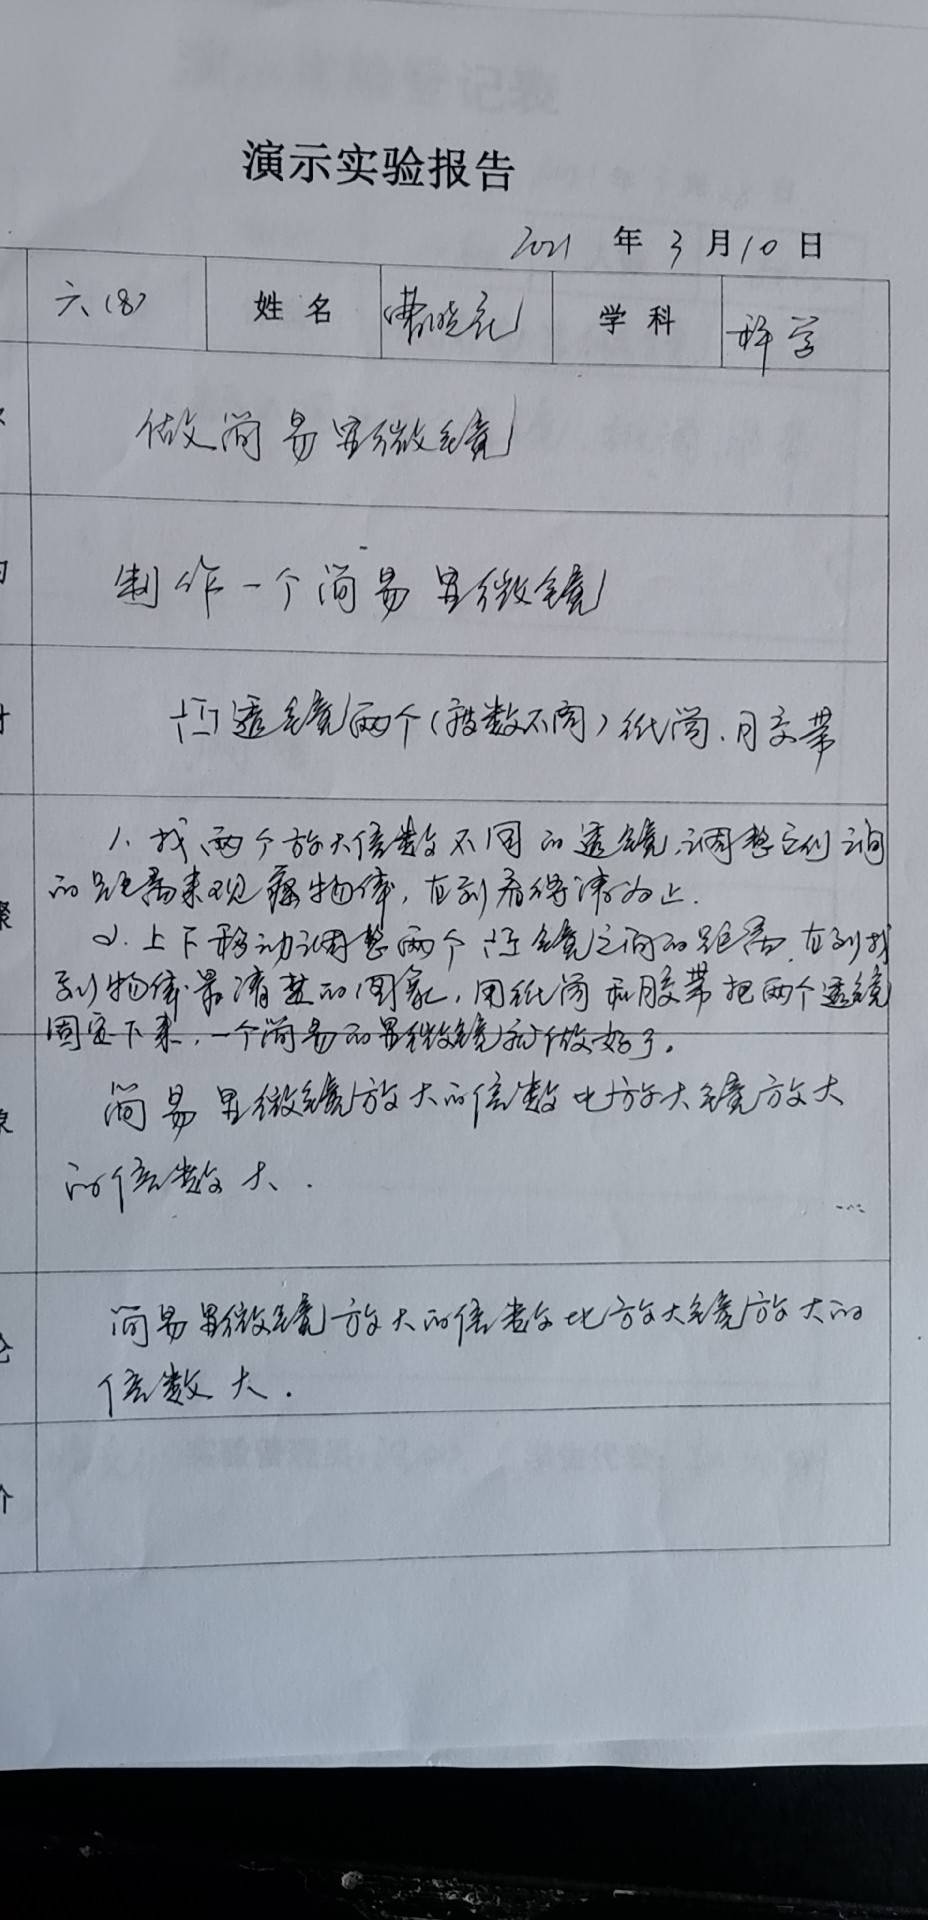 演示实验报告
2021 年 3 月 10 日
六(8) 姓名 曹晓 学科 科学
做简易显微镜
制作一个简易显微镜
透镜两个(倍数不同)纸筒、胶带
1、找两个放大倍数不同的透镜,调整它们之间
的距离来观察物体,直到看得清为止.
2.上下移动调整两个透镜之间的距离,直到找
到物体最清楚的图象,用纸筒和胶带把两个透镜
固定下来,一个简易的显微镜就做好了.
简易显微镜放大的倍数比放大镜放大
的倍数大.
简易显微镜放大的倍数比放大镜放大的
倍数大.